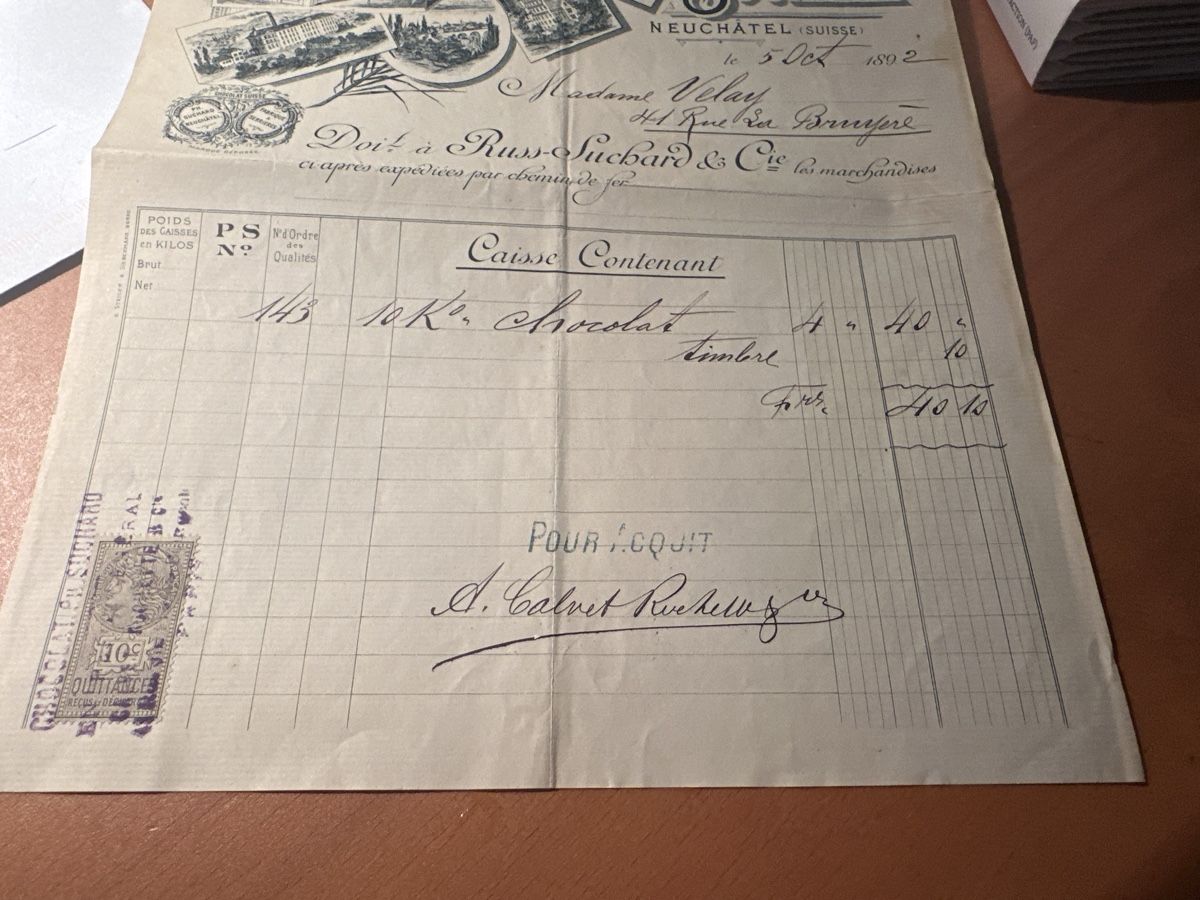 NEUCHÂTEL (SUISSE)
le 5 Oct 1892
Madame Velay
41 Rue La Bruyère
CHOCOLAT SUISSE
PH. SUCHARD NEUCHÂTEL
MARQUE DÉPOSÉE
Doit à Russ-Suchard & Cie les marchandises
ci-après expédiées par chemin de fer
POIDS DES CAISSES en KILOS
Brut
Net
PS No
No d'Ordre des Qualités
Caisse Contenant
143 10 Ko " Chocolat 4 " 40 "
timbre 10
Frs. 40 10
POUR ACQUIT
A. Calvet
CHOCOLAT PH. SUCHARD
10c
QUITTANCES